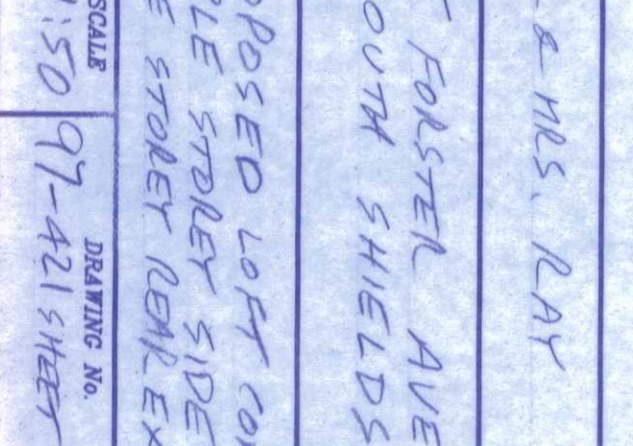 & MRS. RAY
FORSTER AVE
OUTH SHIELDS
POSED LOFT CON
LE STOREY SIDE
E STOREY REAR EX
SCALE
1:50
DRAWING No.
97-421 SHEET